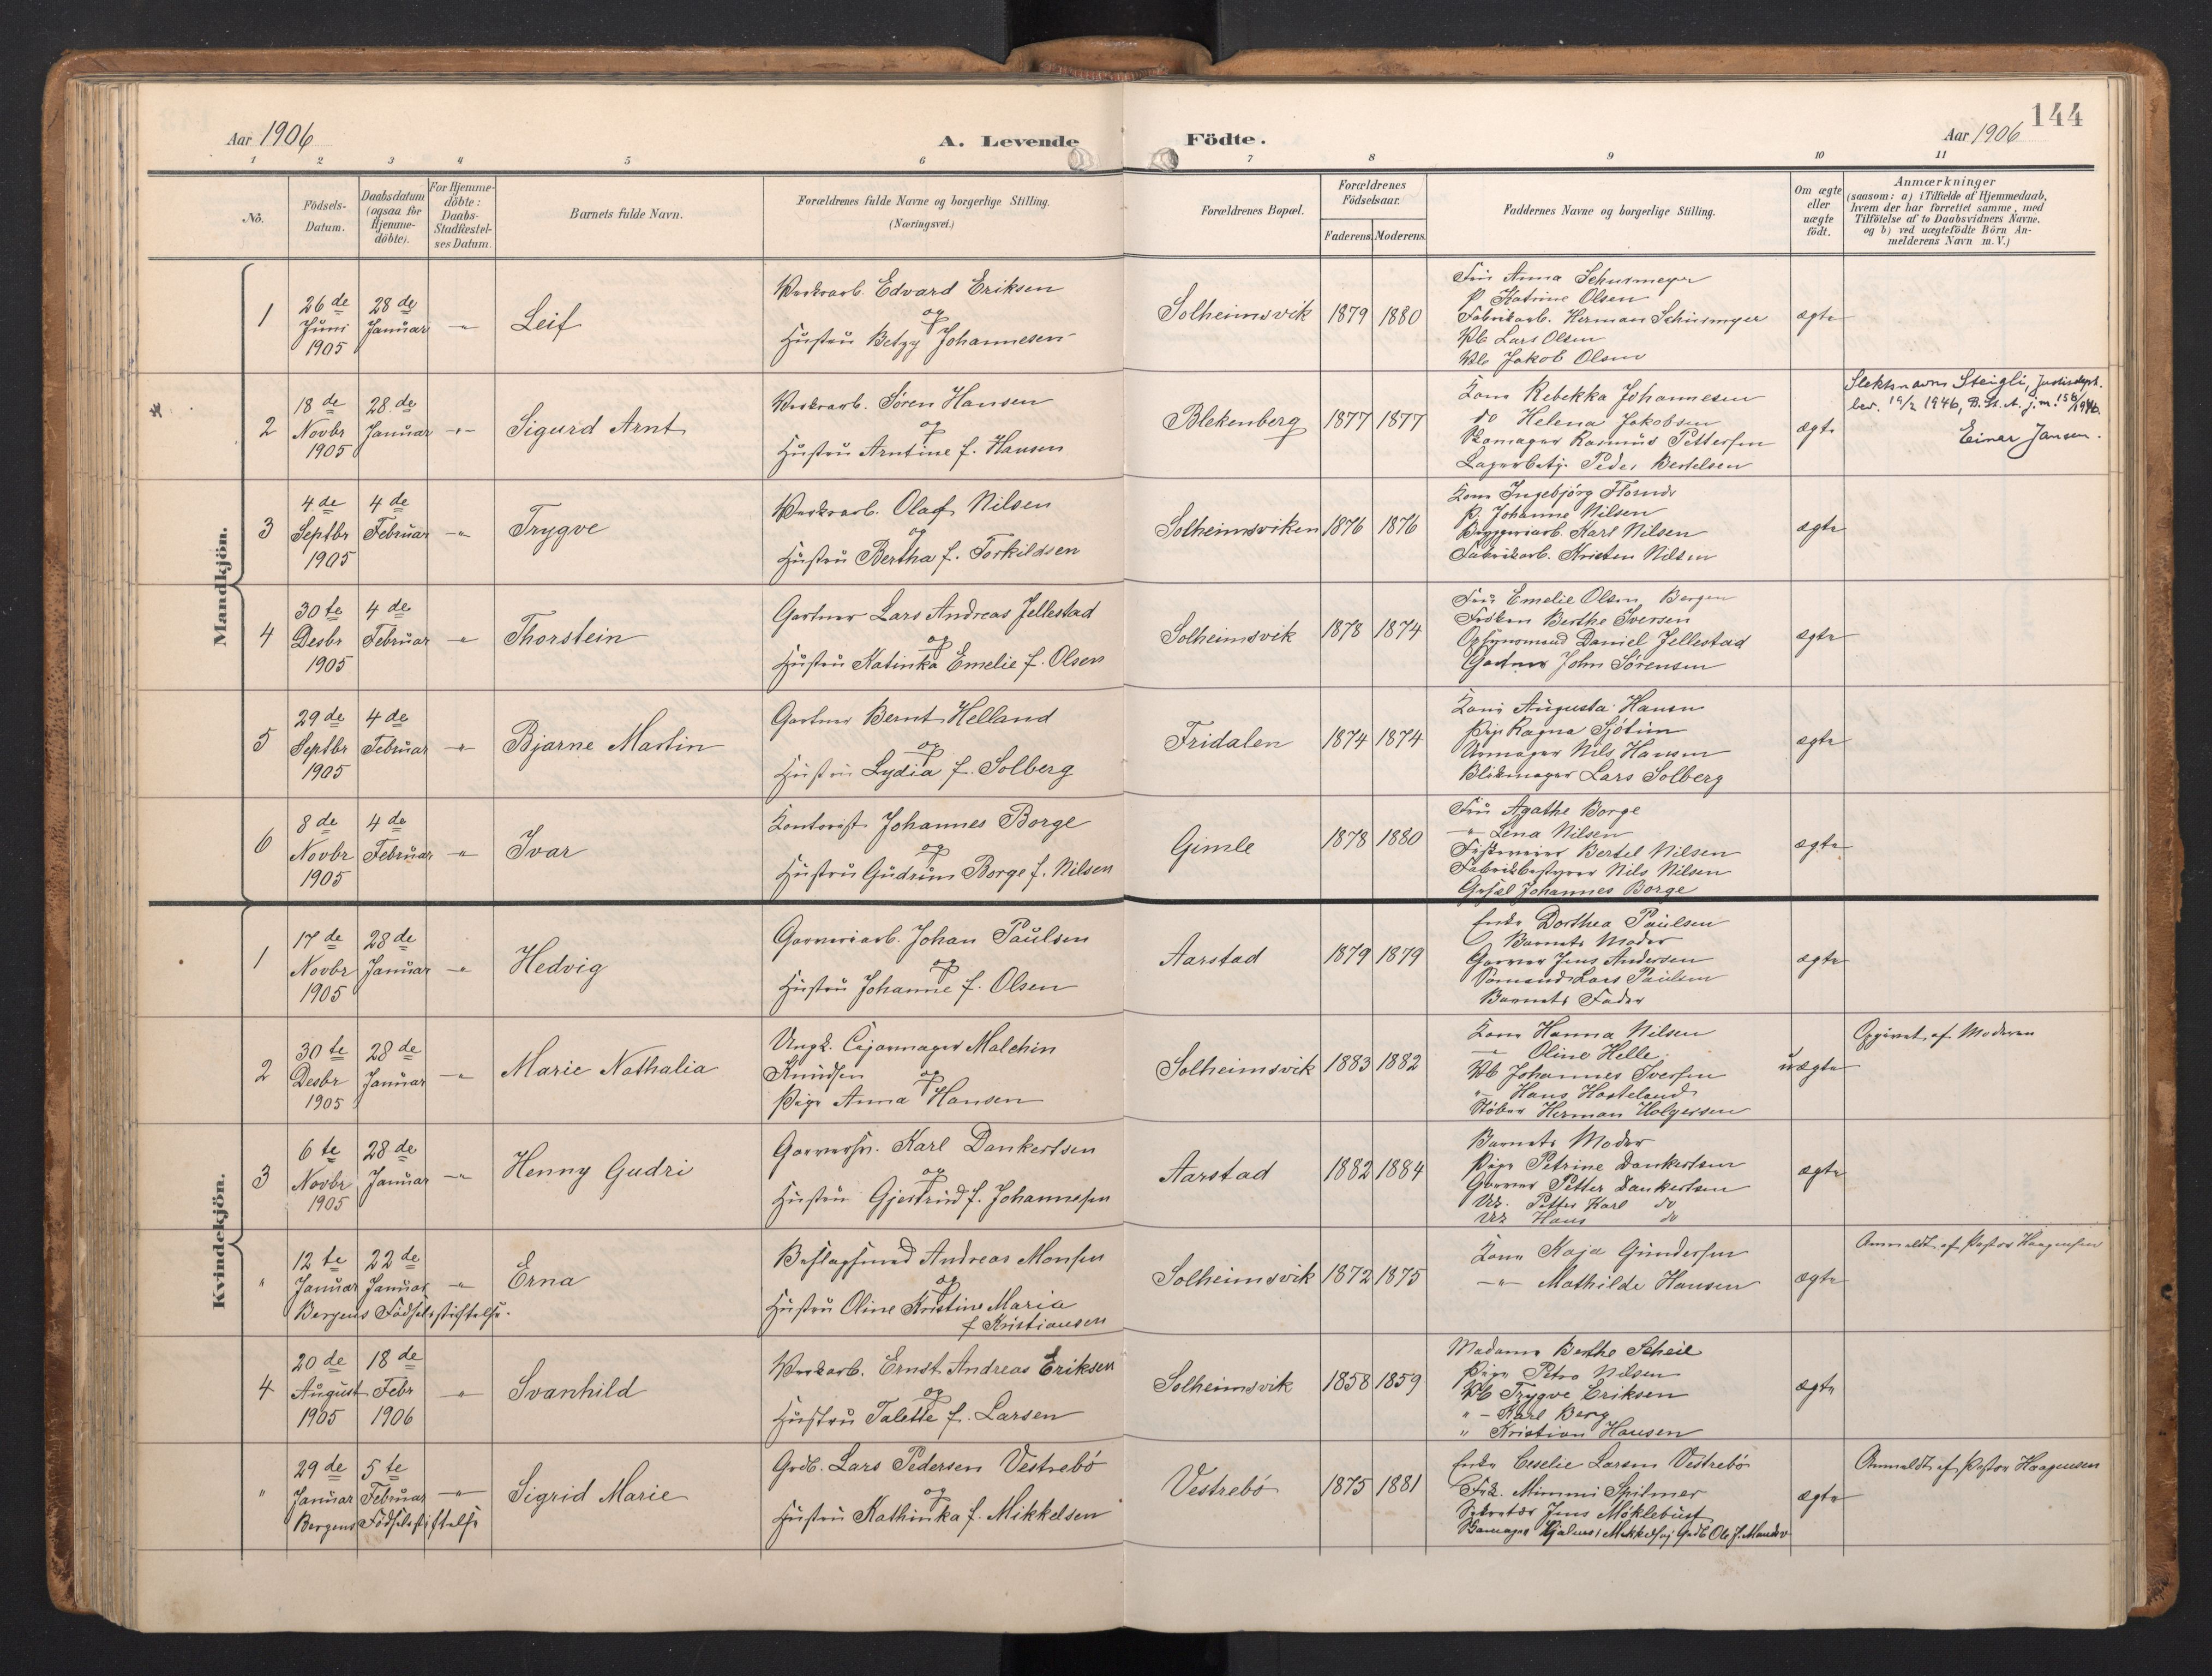 144
Aar 1906
A. Levende Födte.
Aar 1906
1 2 3 4 5 6 7 8 9 10 11
Nö.
Födsels-
Datum.
Daabsdatum
(ogsaa for
Hjemme-
döbte).
For Hjemme-
döbte:
Daabs-
Stadfæstel-
ses Datum.
Barnets fulde Navn.
Forældrenes fulde Navne og borgerlige Stilling.
(Næringsvei.)
Forældrenes Bopæl.
Forældrenes
Födselsaar.
Faderens. Moderens.
Faddernes Navne og borgerlige Stilling.
Om ægte
eller
uægte
födt.
Anmærkninger
(saasom: a) i Tilfælde af Hjemmedaab,
hvem der har forrettet samme, med
Tilföielse af to Daabsvidners Navne,
og b) ved uægtefödte Börn An-
melderens Navn m. V.)
Mandkjön.
1
26de
Juni
1905
28de
Januar
-"-
Leif
Verksarb. Edvard Eriksen
og
Hustru Betzy Johannesen
Solheimsvik
1879 1880
Fru Anna Schusmeyer
P. Katrine Olsen
Fabrikarb. Herman Schusmeyer
Vb Lars Olsen
Vb Jakob Olsen
ægte
2
18de
Novbr
1905
28de
Januar
-"-
Sigurd Arnt
Verksarb. Sören Hansen
og
Hustru Arntine f. Hansen
Blekenberg
1877 1877
Kone Rebekka Johannesen
do Helena Jakobsen
Skomager Rasmus Pettersen
Lagerbetj. Peder Bertelsen
ægte
Slektsnavn Steigli, Justisdept.
bev. 19/2 1946, B. St. A. j.nr. 156/1946.
Einar Jansen.
3
4de
Septbr
1905
4de
Februar
-"-
Trygve
Verksarb. Olaf Nilsen
og
Hustru Bertha f. Torkildsen
Solheimsviken
1876 1876
Kone Ingebjörg
P. Johanne Nilsen
Bryggeriarb. Karl Nilsen
Fabrikarb. Kristen Nilsen
ægte
4
30te
Desbr
1905
4de
Februar
-"-
Thorstein
Gartner Lars Andreas Jellestad
og
Hustru Katinka Emelie f. Olsen
Solheimsvik
1878 1874
Fru Emelie Olsen, Bergen
Fröken Berthe Iversen
Opsynsmand Daniel Jellestad
Gartner John Sörensen
ægte
5
29de
Septbr
1905
4de
Februar
-"-
Bjarne Martin
Gartner Bernt Helland
og
Hustru Lydia f. Solberg
Fridalen
1874 1874
Kone Augusta Hansen
Pige Ragna Sjötun
Urmager Nils Hansen
Blikmager Lars Solberg
ægte
6
8de
Novbr
1905
4de
Februar
-"-
Ivar
Kontorist Johannes Borge
og
Hustru Gudrun Borge f. Nilsen
Gimle
1878 1880
Fru Agathe Borge
-"- Lena Nilsen
Bertel Nilsen
Fabrikbestyrer Nils Nilsen
Johannes Borge
ægte
Kvindekjön.
1
17de
Novbr
1905
28de
Januar
-"-
Hedvig
Garveriarb. Johan Paulsen
og
Hustru Johanne f. Olsen
Aarstad
1879 1879
Enke Dorthea Paulsen
Barnets Moder
Garver Jens Andersen
Sömand Lars Paulsen
Barnets Fader
ægte
2
30te
Desbr
1905
28de
Januar
-"-
Marie Nathalia
Ungk. Cigarmager Malchin
Knudsen og
Pige Anna Hansen
Solheimsvik
1883 1882
Kone Hanna Nilsen
-"- Oline Helle
Vb Johannes Iversen
"- Hans Hasteland
Stöber Herman Holgersen
uægte
Opgivet af Moderen
3
6te
Novbr
1905
28de
Januar
-"-
Henny Gudri
Garversv. Karl Dankertsen
og
Hustru Gjertrud f. Johannesen
Aarstad
1882 1884
Barnets Moder
Pige Petrine Dankertsen
Garver Petter Dankertsen
Uk. Petter Karl do
Uk Hans do
ægte
"
12te
Januar
22de
Januar
-"-
Bergens Födselsstiftelse.
Erna
Beslagsmed Andreas Monsen
og
Hustru Oline Kristine Maria
f Kristiansen
Solheimsvik
1872 1875
Kone Kaja Gundersen
-"- Mathilde Hansen
ægte
Anmeldt af Pastor Haagensen
4
20de
August
1905
18de
Febr
1906
-"-
Svanhild
Verksarb. Ernst Andreas Eriksen
og
Hustru Talette f. Larsen
Solheimsvik
1858 1859
Madame Berthe Scheie
Pige Petra Nilsen
Vb Trygve Eriksen
"- Karl Berg
" Kristian Hansen
ægte
"
29de
Januar
5te
Februar
-"-
Bergens Födselsstiftelse
Sigrid Marie
Grdb. Lars Pedersen Vestrebö
og
Hustru Kathinka f. Mikkelsen
Vestrebö
1875 1881
Enke Ceselie Larsen Vestrebö
Frk. Mimmi Spilmer
Sekretær Jens Möklebust
Skomager Hjalmar Mikkelsen, Grdb Ole J. Mandv
ægte
Anmeldt af Pastor Haagensen